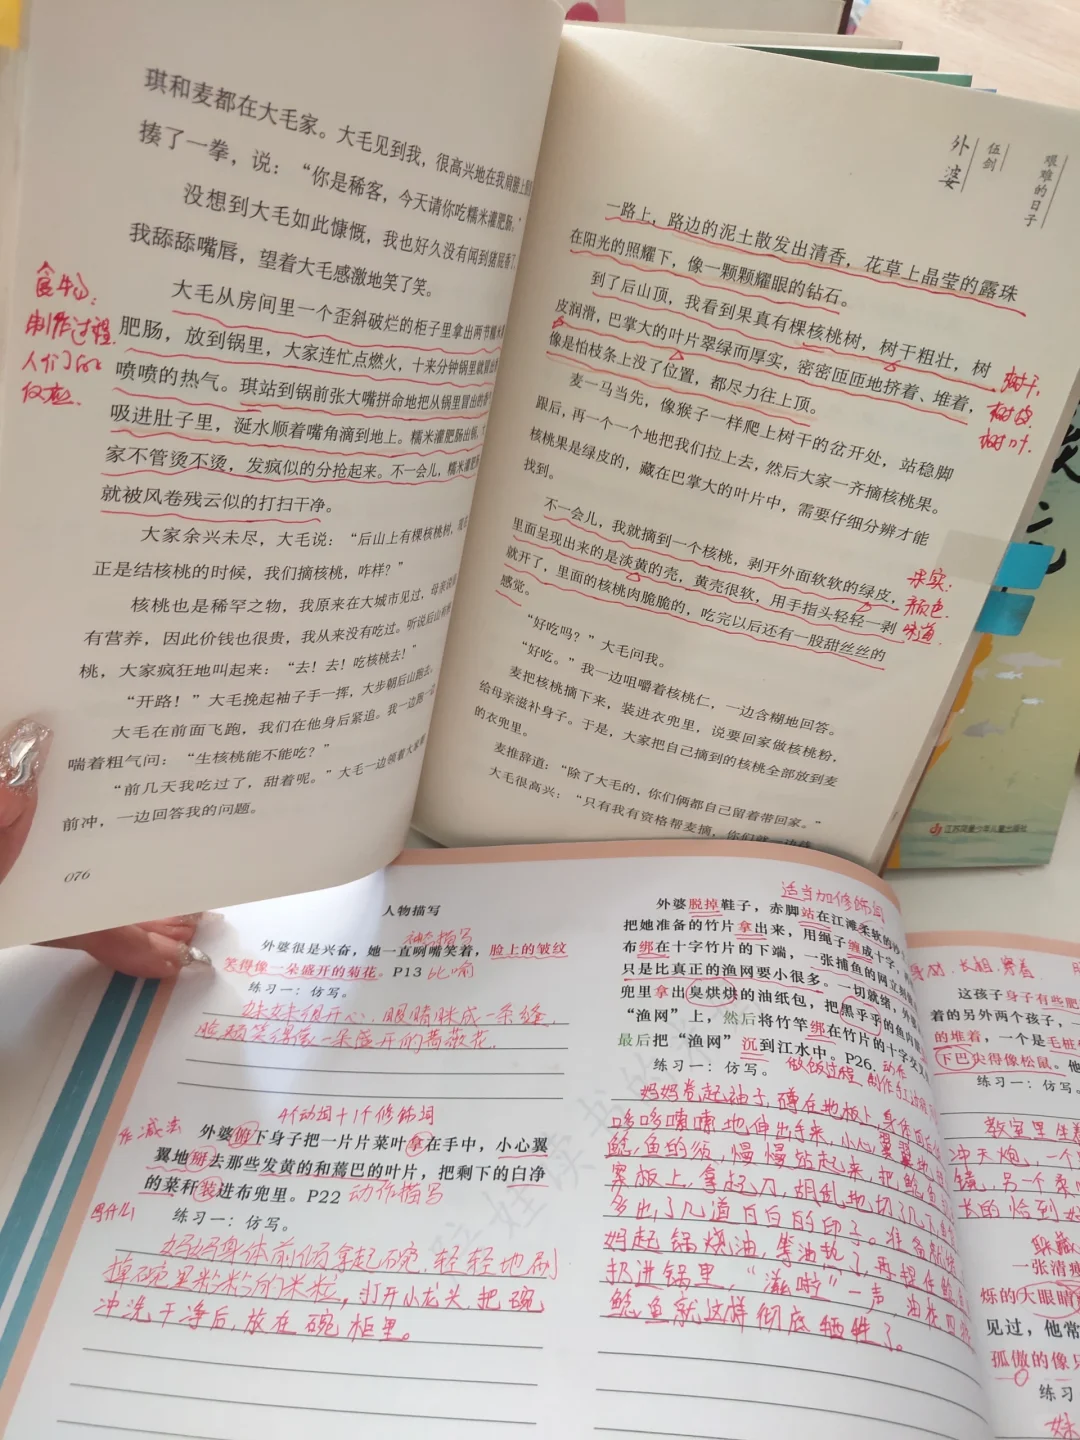 琪和麦都在大毛家。大毛见到我，很高兴地在我肩膀上
揍了一拳，说：“你是稀客，今天请你吃糯米灌肥肠。”
没想到大毛如此慷慨，我也好久没有闻到猪屁香了
我舔舔嘴唇，望着大毛感激地笑了笑。
大毛从房间里一个歪斜破烂的柜子里拿出两节糯米
肥肠，放到锅里，大家连忙点燃火，十来分钟锅里就冒出
喷喷的热气。琪站到锅前张大嘴拼命地把从锅里冒出的
吸进肚子里，涎水顺着嘴角滴到地上。糯米灌肥肠出锅，
家不管烫不烫，发疯似的分抢起来。不一会儿，糯米灌肥肠
就被风卷残云似的打扫干净。
大家余兴未尽，大毛说：“后山上有棵核桃树，现在
正是结核桃的时候，我们摘核桃，咋样？”
核桃也是稀罕之物，我原来在大城市见过，母亲说
有营养，因此价钱也很贵，我从来没有吃过。听说后山有核
桃，大家疯狂地叫起来：“去！去！吃核桃去！”
“开路！”大毛挽起袖子手一挥，大步朝后山跑去。
大毛在前面飞跑，我们在他身后紧追。我一边跑一边
喘着粗气问：“生核桃能不能吃？”
“前几天我吃过了，甜着呢。”大毛一边领着大家
前冲，一边回答我的问题。
076
食物：
制作过程
人们的
反应
艰难的日子
伍剑
外婆
一路上，路边的泥土散发出清香，花草上晶莹的露珠
在阳光的照耀下，像一颗颗耀眼的钻石。
到了后山顶，我看到果真有棵核桃树，树干粗壮，树
皮润滑，巴掌大的叶片翠绿而厚实，密密匝匝地挤着、堆着，
像是怕枝条上没了位置，都尽力往上顶。
麦一马当先，像猴子一样爬上树干的岔开处，站稳脚
跟后，再一个一个地把我们拉上去，然后大家一齐摘核桃果。
核桃果是绿皮的，藏在巴掌大的叶片中，需要仔细分辨才能
找到。
不一会儿，我就摘到一个核桃，剥开外面软软的绿皮，
里面呈现出来的是淡黄的壳，黄壳很软，用手指头轻轻一剥
就开了，里面的核桃肉脆脆的，吃完以后还有一股甜丝丝的
感觉。
“好吃吗？”大毛问我。
“好吃。”我一边咀嚼着核桃仁，一边含糊地回答。
麦把核桃摘下来，装进衣兜里，说要回家做核桃粉，
给母亲滋补身子。于是，大家把自己摘到的核桃全部放到麦
的衣兜里。
麦推辞道：“除了大毛的，你们俩都自己留着带回家。”
大毛很高兴：“只有我有资格帮麦摘，你们就一边
树干，
树皮，
树叶。
果实：
颜色
味道
江苏凤凰少年儿童出版社
人物描写
神态描写
外婆很是兴奋，她一直咧嘴笑着，脸上的皱纹
笑得像一朵盛开的菊花。P13 比喻
练习一：仿写。
妹妹很开心，眼睛眯成一条缝，
脸颊笑得像一朵盛开的蔷薇花。
4个动词+1个修饰词
外婆俯下身子把一片片菜叶拿在手中，小心翼
翼地掰去那些发黄的和蔫巴的叶片，把剩下的白净
的菜秆装进布兜里。P22 动作描写
练习一：仿写。
妈妈身体前倾拿起碗，轻轻地刷
掉碗里粘粘的米粒，打开水龙头，把碗
冲洗干净后，放在碗柜里。
适当加修饰词
外婆脱掉鞋子，赤脚站在江滩柔软的沙
把她准备的竹片拿出来，用绳子缠成十字，
布绑在十字竹片的下端，一张捕鱼的网立刻
只是比真正的渔网要小很多。一切就绪，外
兜里拿出臭烘烘的油纸包，把黑乎乎的鱼肉
“渔网”上，然后将竹竿绑在竹片的十字交叉
最后把“渔网”沉到江水中。P26. 动作
练习一：仿写。 做饭过程 制作手工
妈妈卷起袖子，蹲在地板上，身体
哆哆嗦嗦地伸出手来，小心翼翼地
鲶鱼的须，慢慢站起来，把鲶鱼
案板上，拿起刀，胡乱地切了几下，鱼
多出了几道白白的印子。准备就绪，
妈起锅烧油，等油热了，再捏住鲶鱼
扔进锅里，“滋啦”一声，油花四溅
鲶鱼就这样彻底牺牲了。
身材、长相、穿着
这孩子身子有些肥
着的另外两个孩子，一
的堆着，一个是毛桩
下巴尖得像松鼠。他
练习一：仿写。
教室里坐着
冲天炮，一个
镜，另一个
长的恰到好
一张清瘦
烁的大眼睛
见过，他常
孤傲的像只
练习
妹